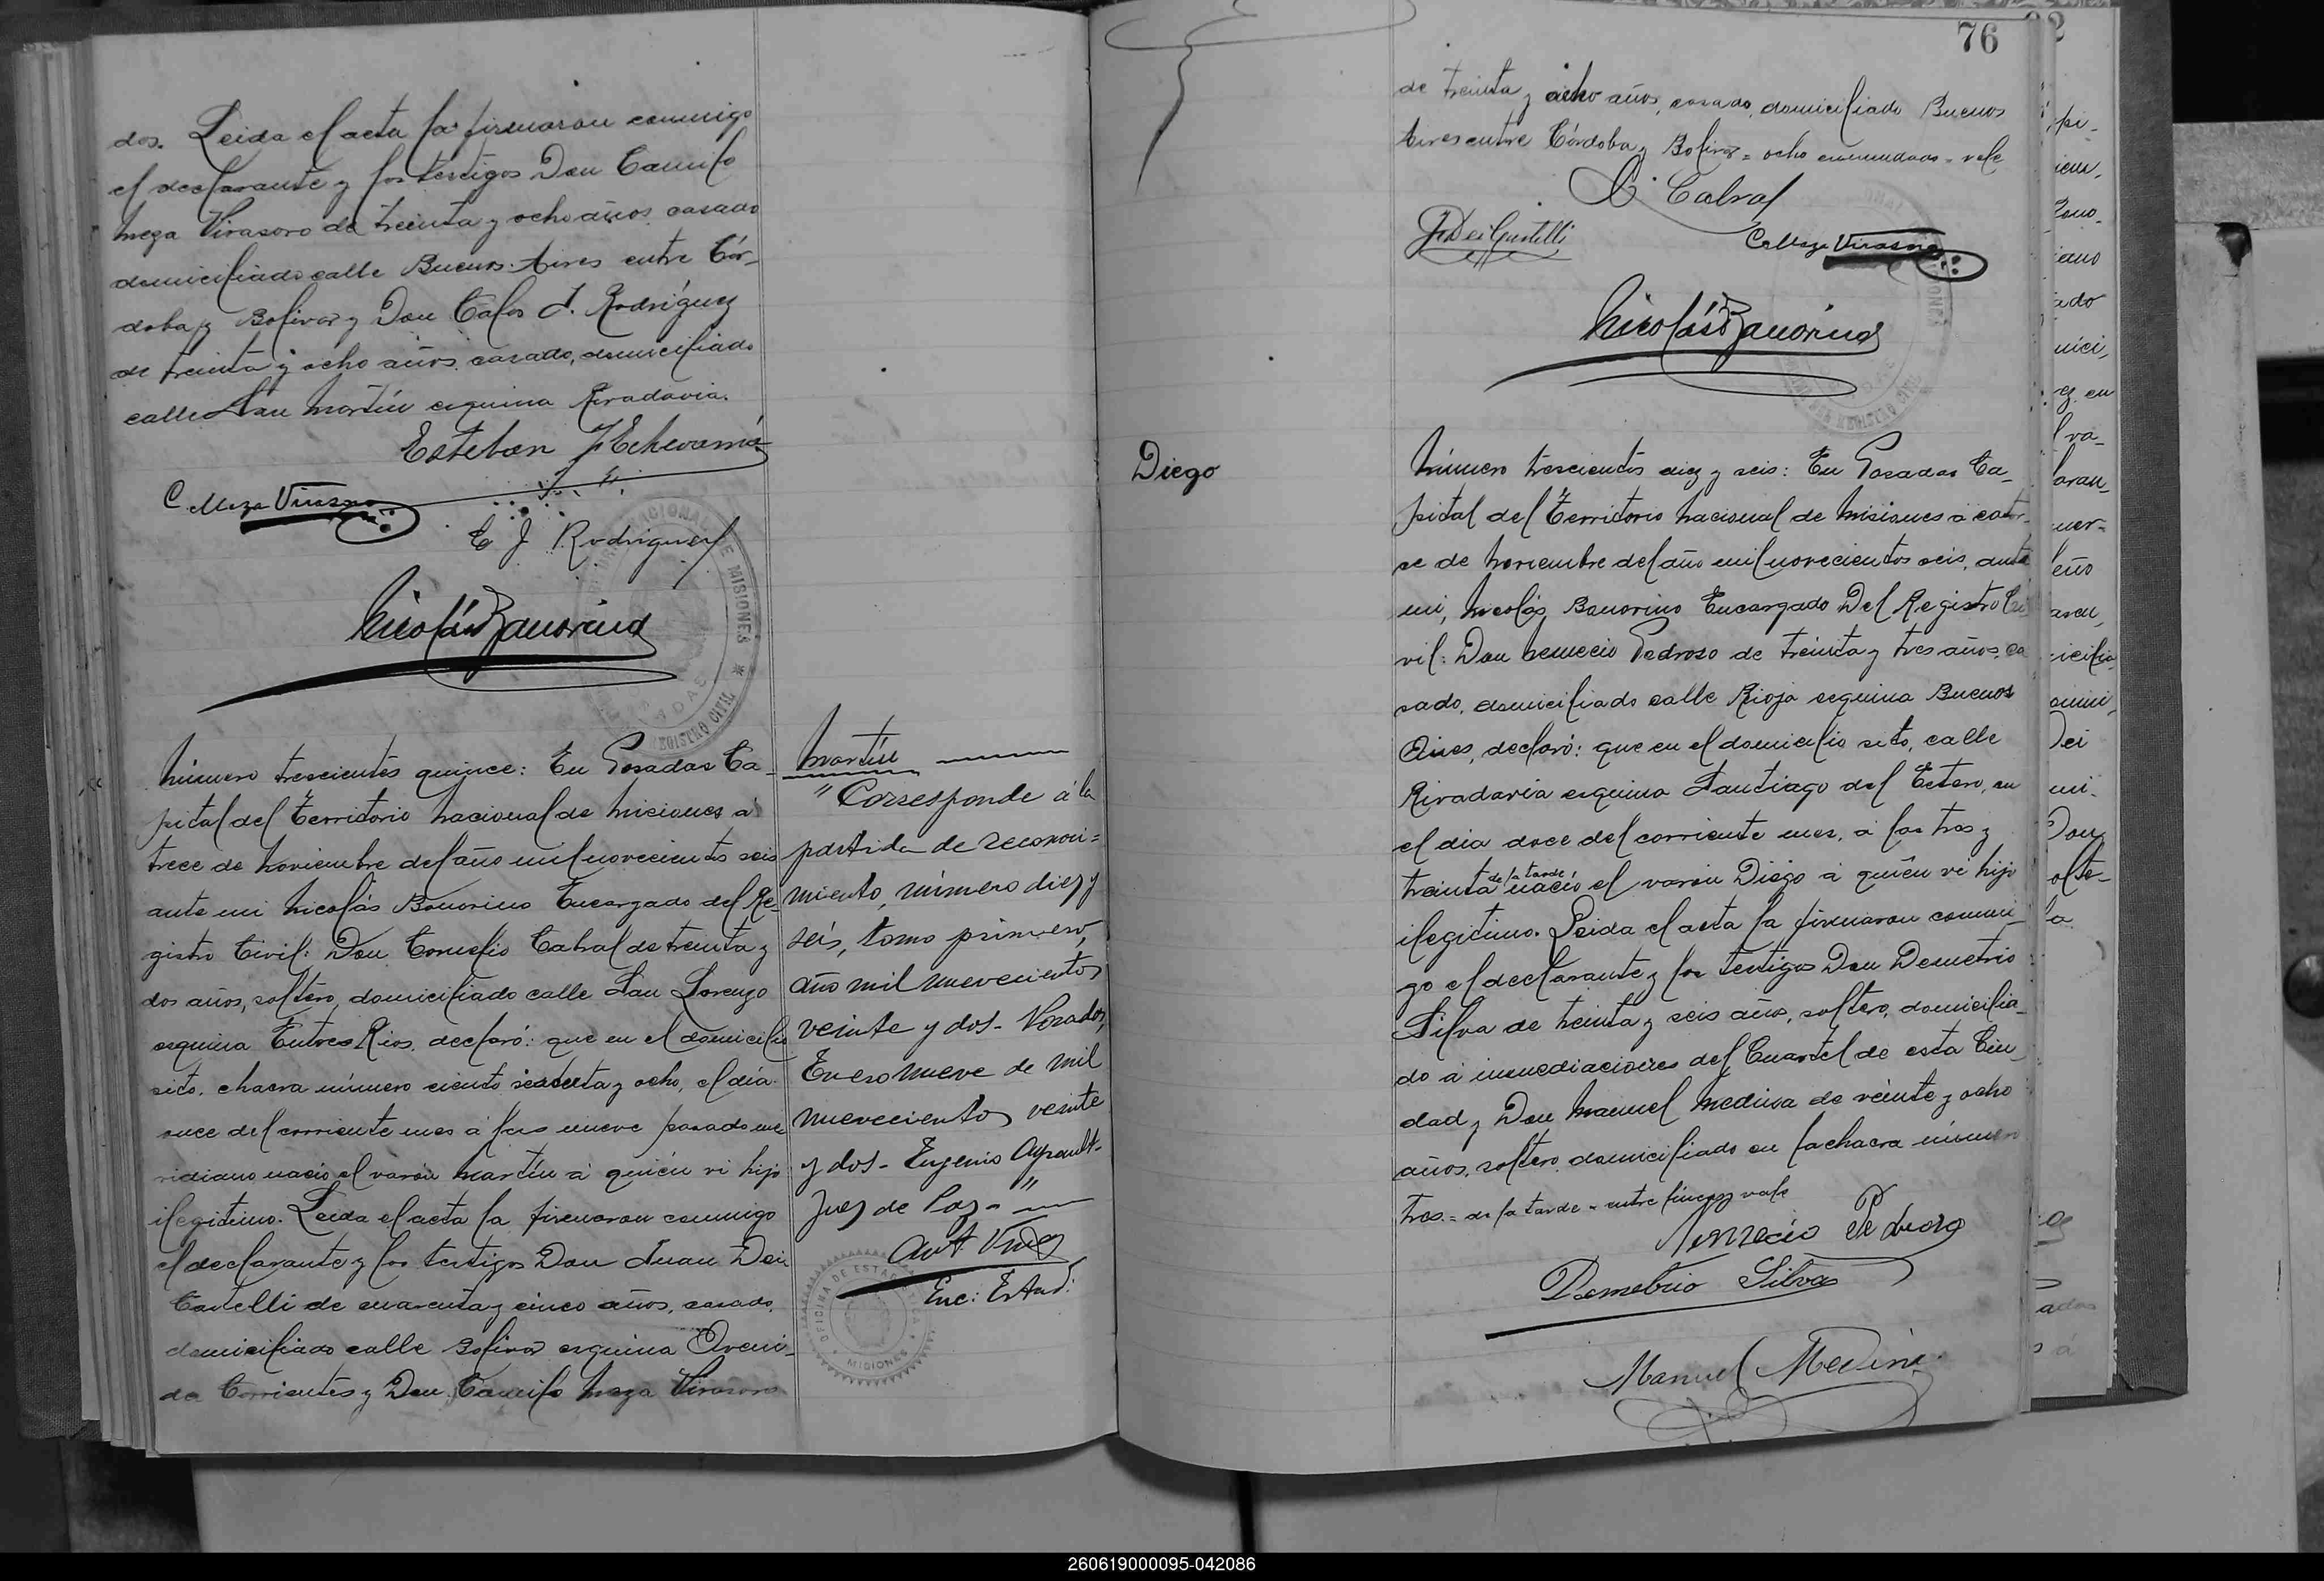 dos. Leida el acta la firmaron conmigo
el declarante y los testigos Don Camilo
Meza Virasoro de treinta y ocho años casado
domiciliado calle Buenos Aires entre Cór-
doba y Bolivar y Don Carlos J. Rodríguez
de treinta y ocho años, casado, domiciliado
calle San Martín esquina Rivadavia.
Esteban J Echevarría
C. Meza Virasoro
C J Rodriguez
Nicolás Bonorino
Martín
Número trescientos quince: En Posadas Ca-
pital del Territorio Nacional de Misiones á
trece de Noviembre del año mil novecientos seis
ante mi Nicolás Bonorino Encargado del Re-
gistro Civil: Don Cornelio Cabral de treinta y
dos años, soltero, domiciliado calle San Lorenzo
esquina Entre Rios, declaró: que en el domicilio
sito, chacra número ciento setenta y ocho, el día
once del corriente mes á las nueve pasado me-
ridiano nació el varón Martín á quién vi hijo
ilegitimo. Leida el acta la firmaron conmigo
el declarante y los testigos Don Juan Dei
Castelli de cuarenta y cinco años, casado,
domiciliado calle Bolivar esquina Aveni-
da Corrientes y Don Camilo Meza Virasoro
"Corresponde á la
partida de reconoci=
miento, número diez y
seis, tomo primero,
año mil novecientos
veinte y dos - Posadas,
Enero nueve de mil
novecientos veinte
y dos - Eugenio
Juez de Paz - "
Enc: Estad:
OFICINA DE ESTADISTICA
MISIONES
76
de treinta y ocho años, casado, domiciliado Buenos
Aires entre Córdoba y Bolivar = ocho enmendado = vale
C. Cabral
J Dei Castelli
C. Meza Virasoro
Nicolás Bonorino
Diego
Número trescientos diez y seis: En Posadas Ca-
pital del Territorio Nacional de Misiones á cator-
ce de Noviembre del año mil novecientos seis, ante
mi, Nicolás Bonorino Encargado Del Registro Ci-
vil: Don Venecio Pedroso de treinta y tres años, ca
sado, domiciliado calle Rioja esquina Buenos
Aires, declaró: que en el domicilio sito, calle
Rivadavia esquina Santiago del Estero, en
el día doce del corriente mes, á las tres y
treinta de la tarde nació el varón Diego á quién vi hijo
ilegitimo. Leida el acta la firmaron conmi-
go el declarante y los testigos Don Demetrio
Silva de treinta y seis años, soltero, domicilia-
do á inmediaciones del Cuartel de esta Ciu-
dad y Don Manuel Medina de veinte y ocho
años, soltero domiciliado en la chacra número
tres. = de la tarde = entre líneas vale
Pedroso
Demetrio Silva
Manuel Medina
260619000095-042086